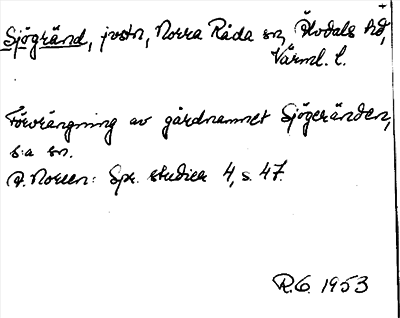 Sjögränd, jvstn, Norra Råda sn, Älvdals hd,
Värml. l.
Förvrängning av gårdnamnet Sjögeränden,
s:a sn.
A. Noreen: Spr. studier 4, s. 47.
R.G. 1953